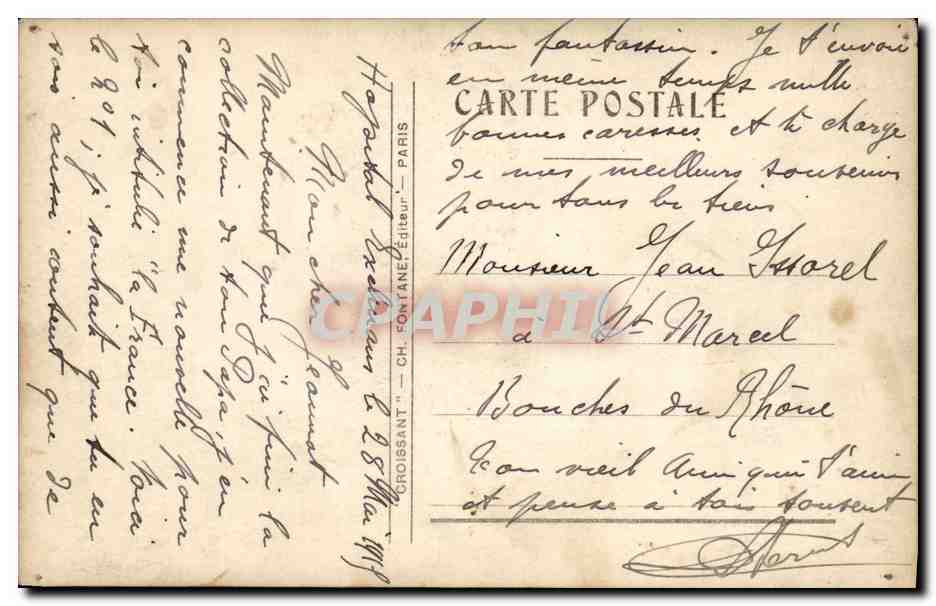 Hopital Exelmans le 28 Mai 1915
Mon cher Jeannot
Maintenant que j'ai fini la
collection de ton Papa, j'en
commence une nouvelle pour
toi intitulé "la France. Voici
le No 1, je souhait que tu en
sois aussi content que de
ton fantassin. Je t'envoie
en même temps mille
bonnes caresses et te charge
de mes meilleurs souvenirs
pour tous les tiens
CARTE POSTALE
Monsieur Jean Issorel
à St Marcel
Bouches du Rhône
Ton vieil Ami qui t'aime
et pense à tois souvent
CROISSANT" — CH. FONTANE, Éditeur — PARIS
CPAPHIL